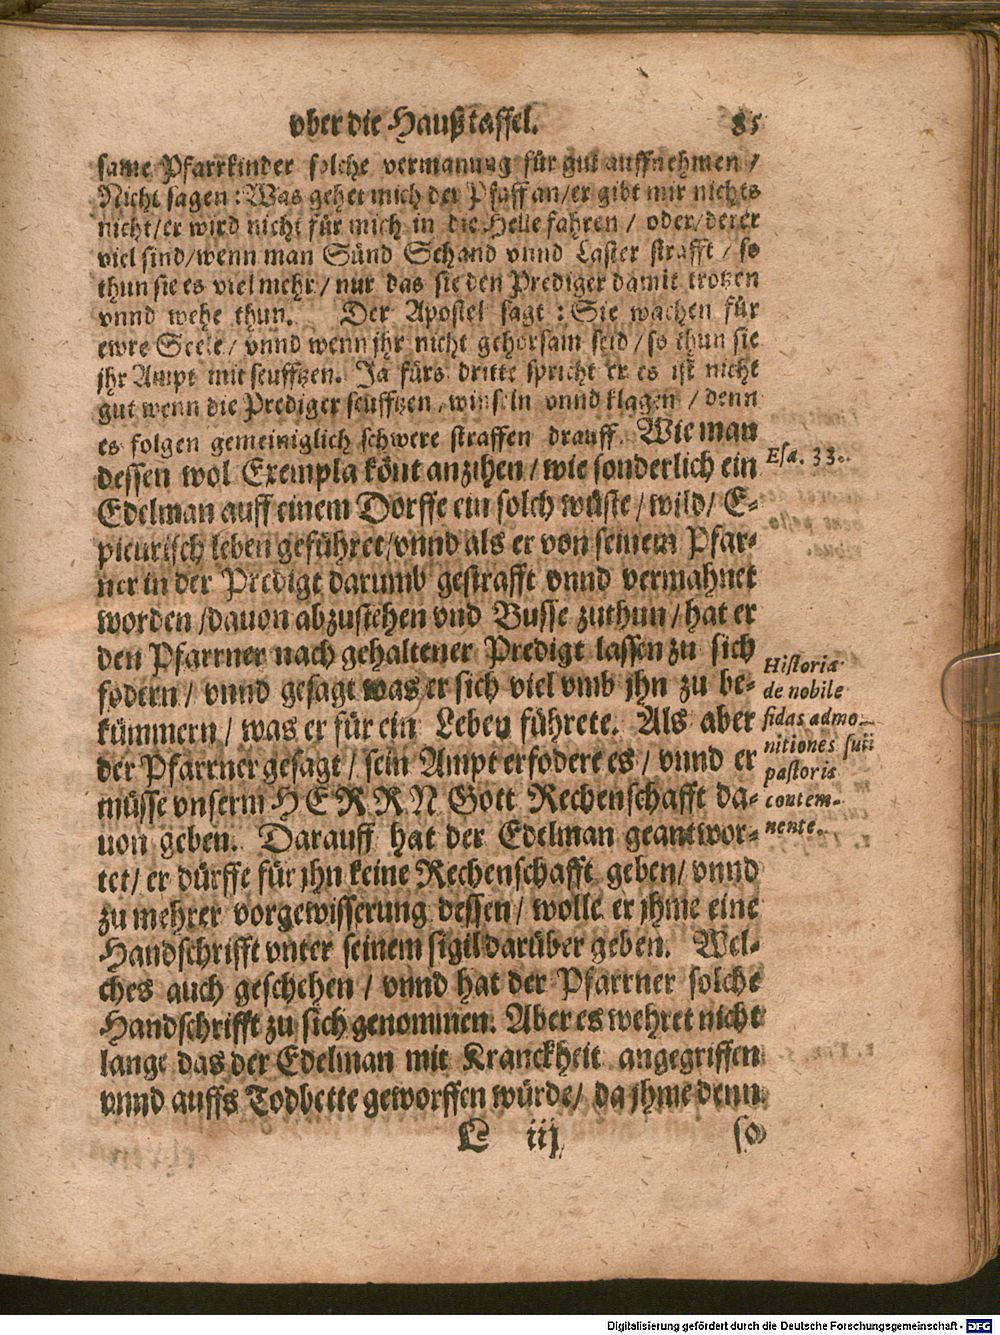 vber die Haußtaffel. 85
same Pfarrkinder solche vermanung für gut auffnehmen /
Nicht sagen: Was gehet mich der Pfaff an/er gibt mir nichts
nicht/er wird nicht für mich in die Helle fahren / oder/derer
viel sind/wenn man Sünd Schand vnnd Laster strafft / so
thun sie es viel mehr/ nur das sie den Prediger damit trotzen
vnnd wehe thun. Der Apostel sagt: Sie wachen für
ewre Seele/ vnnd wenn jhr nicht gehorsam seid/ so thun sie
jhr Ampt mit seufftzen. Ja fürs dritte spricht er es ist nicht
gut wenn die Prediger seufftzen, winseln vnnd klagen / denn
es folgen gemeiniglich schwere straffen drauff. Wie man
Esa. 33.
dessen wol Exempla könt anzihen/ wie sonderlich ein
Edelman auff einem Dorffe ein solch wüste/ wild/ E-
picurisch leben geführet/vnnd als er von seinem Pfar-
ner in der Predigt darumb gestrafft vnnd vermahnet
worden/dauon abzustehen vnd Busse zuthun/hat er
den Pfarrner nach gehaltener Predigt lassen zu sich
fodern/ vnnd gesagt was er sich viel vmb jhn zu be-
kümmern/ was er für ein Leben führete. Als aber
der Pfarrner gesagt/ sein Ampt erfodere es/ vnnd er
müsse vnserm HERRN Gott Rechenschafft da-
uon geben. Darauff hat der Edelman geantwor-
tet/ er dürffe für jhn keine Rechenschafft geben/ vnnd
zu mehrer vorgewisserung dessen/ wolle er jhme eine
Handschrifft vnter seinem sigil darüber geben. Wel-
ches auch geschehen/ vnnd hat der Pfarrner solche
Handschrifft zu sich genommen. Aber es wehret nicht
lange das der Edelman mit Kranckheit angegriffen
vnnd auffs Todbette geworffen würde/ da jhme denn
Historia
de nobile
fidas admo-
nitiones sui
pastoris
contem-
nente.
L iij so
Digitalisierung gefördert durch die Deutsche Forschungsgemeinschaft - DFG